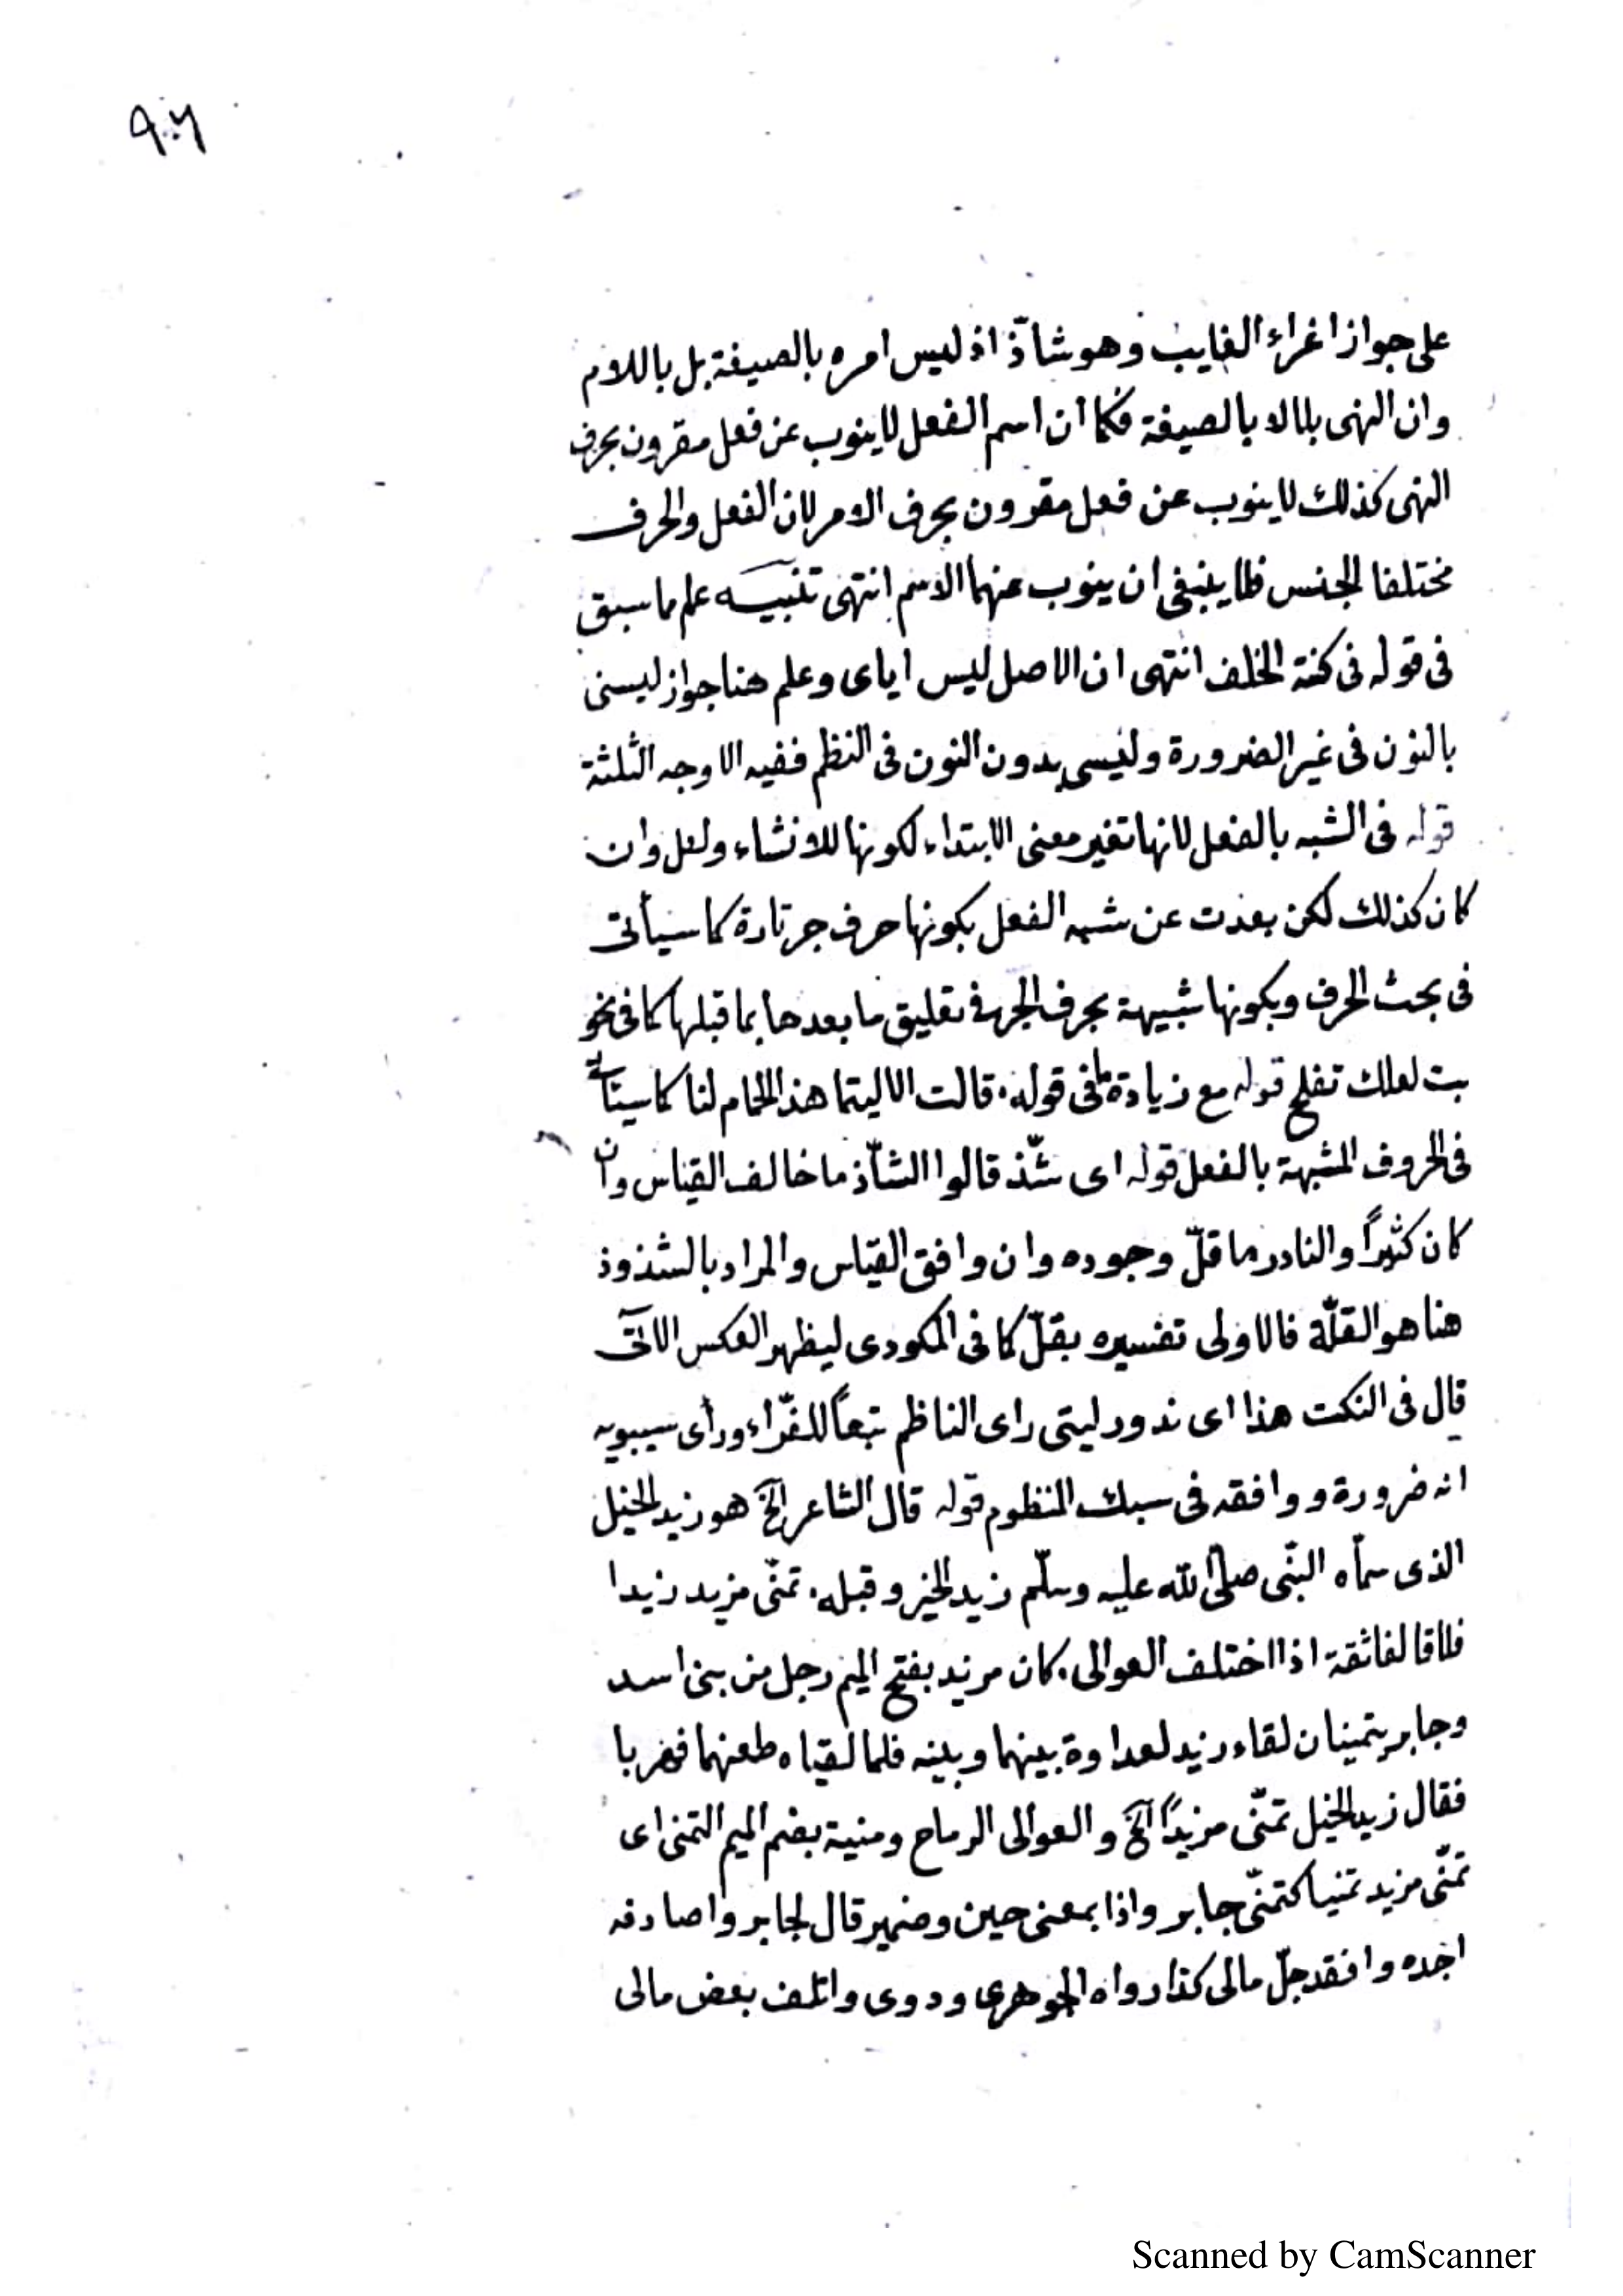 ٩٠٦
على جواز اغراء الغايب وهو شاذّ اذ ليس امره بالصيغة بل باللام
وان النهى بلا لا بالصيغة فكما ان اسم الفعل لا ينوب عن فعل مقرون بحرف
النهى كذلك لا ينوب عن فعل مقرون بحرف الامر لان الفعل والحرف
مختلفا الجنس فلا ينبغى ان ينوب عنهما الاسم انتهى تنبيه علم ما سبق
فى قوله فى كنته الخلف انتهى ان الاصل ليس اياى وعلم هنا جواز ليسنى
بالنون فى غير الضرورة وليسى بدون النون فى النظم ففيه الاوجه الثلثة
قوله فى الشبه بالفعل لانها تغير معنى الابتداء لكونها للانشاء ولعل وان
كان كذلك لكن بعدت عن شبه الفعل بكونها حرف جر تارة كما سيأتى
فى بحث الحرف وبكونها شبيهة بحرف الجر فى تعليق ما بعدها بما قبلها كما فى نحو
تبت لعلك تفلح قوله مع زيادة ما فى قوله. قالت الا ليتما هذا الحمام لنا كما سيأتى
فى الحروف المشبهة بالفعل قوله اى شذّ قالوا الشاّذ ما خالف القياس وان
كان كثيرًا والنادر ما قلّ وجوده وان وافق القياس والمراد بالشذوذ
هنا هو القلّة فالاولى تفسيره بقلّ كما فى المكودى ليظهر العكس الآتى
قال فى النكت هذا اى ندور ليتى راى الناظم تبعًا للفرّاء ورأى سيبويه
انه ضرورة ووافقه فى سبك المنظوم قوله قال الشاعر الخ هو زيد الخيل
الذى سمّاه النبّى صلى الله عليه وسلّم زيد الخير وقبله. تمنّى مزيد زيدا
فلاقا لفاثقة اذا اختلف العوالى. كان مزيد بفتح الميم رجل من بنى اسد
وجابر يتمنيان لقاء زيد لعداوة بينهما وبينه فلما لقياه طعنهما فهربا
فقال زيد الخيل تمنّى مزيدًا الخ والعوالى الرماح ومنية بضم الميم التمنى اى
تمنّى مزيد تمنيا كتمنّى جابر واذا بمعنى حين وضمير قال لجابر واصادفه
اجده وافقد جلّ مالى كذا رواه الجوهرى وروى واتلف بعض مالى
Scanned by CamScanner